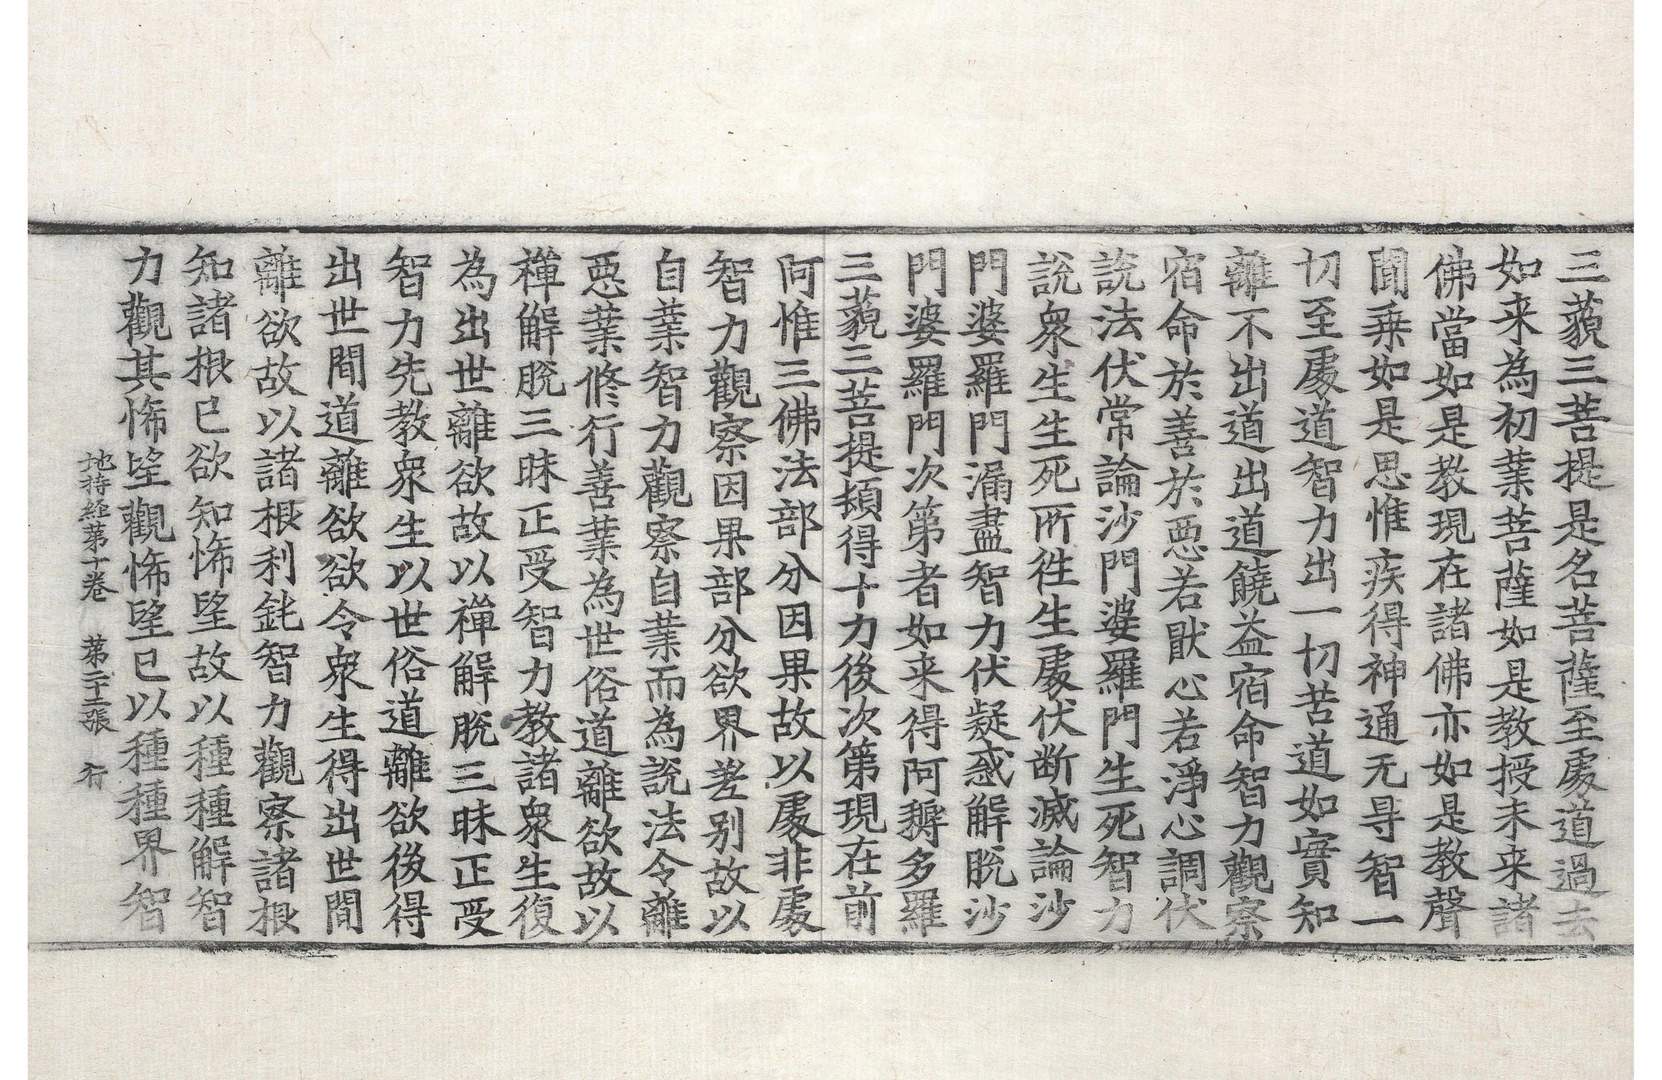 三藐三菩提是名菩薩至處道過去
如来為初業菩薩如是教授未来諸
佛當如是教現在諸佛亦如是教聲
聞乗如是思惟疾得神通无㝵智一
切至處道智力出一切苦道如實知
離不出道出道饒益宿命智力觀察
宿命於善於惡若猒心若淨心調伏
說法伏常論沙門婆羅門生死智力
說衆生生死所徃生處伏断滅論沙
門婆羅門漏盡智力伏疑惑解脫沙
門婆羅門次第者如来得阿耨多羅
三藐三菩提頓得十力後次第現在前
阿惟三佛法部分因果故以處非處
智力觀察因果部分欲界差别故以
自業智力觀察自業而為說法令離
惡業修行善業為世俗道離欲故以
禪解脫三昧正受智力教諸衆生復
為出世離欲故以禪解脫三昧正受
智力先教衆生以世俗道離欲後得
出世間道離欲欲令衆生得出世間
離欲故以諸根利鈍智力觀察諸根
知諸根已欲知悕望故以種種解智
力觀其悕望觀悕望已以種種界智
地持經第十卷 第二十三張 行